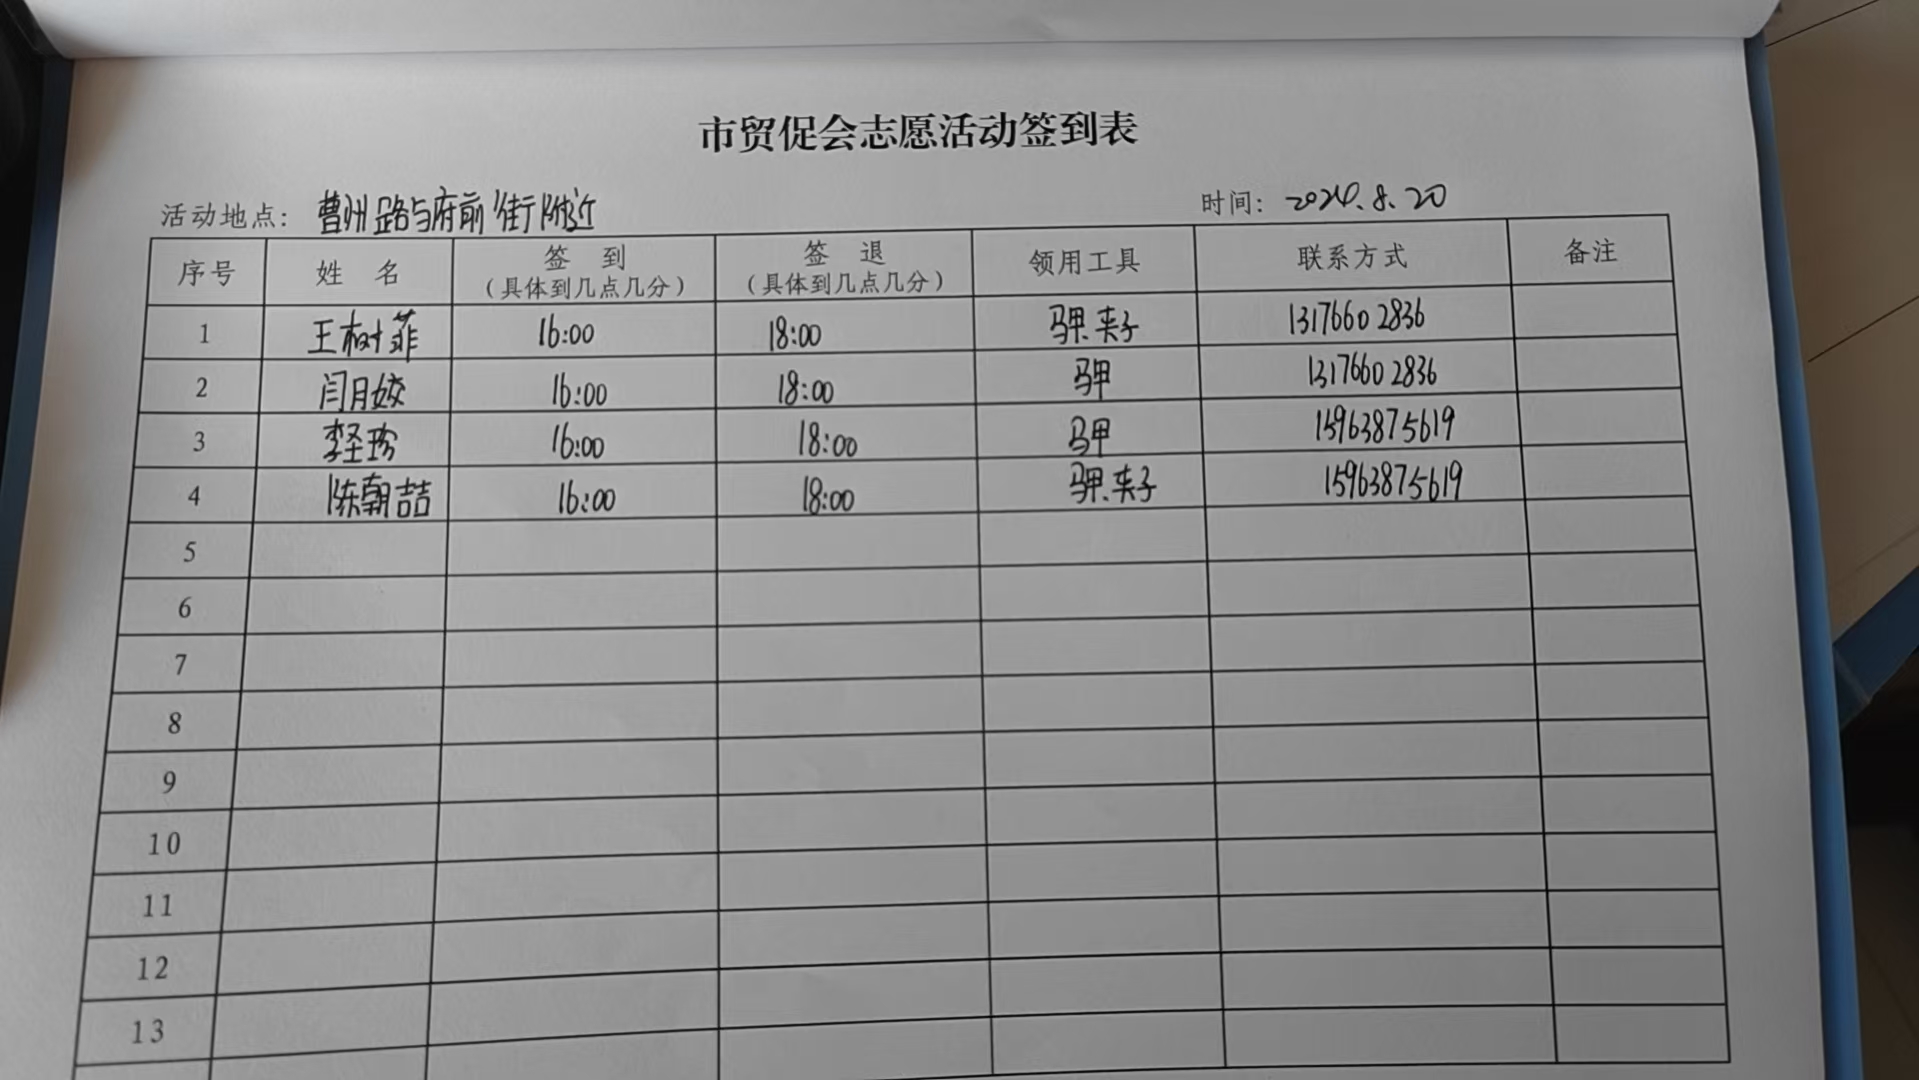 市贸促会志愿活动签到表
活动地点: 曹州路与府前街附近 时间: 2024.8.20
序号 姓 名 签 到 (具体到几点几分) 签 退 (具体到几点几分) 领用工具 联系方式 备注
1 王树菲 16:00 18:00 马甲.夹子 13176602836
2 闫月姣 16:00 18:00 马甲 13176602836
3 李圣珍 16:00 18:00 马甲 15963875619
4 陈朝喆 16:00 18:00 马甲.夹子 15963875619
5
6
7
8
9
10
11
12
13